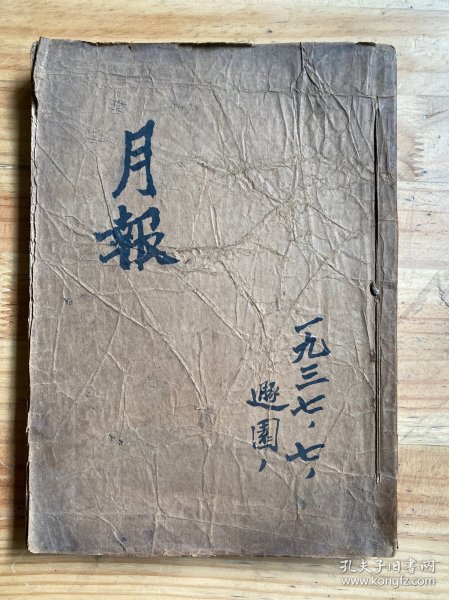 月報
一九三七.七,
遯園,
孔夫子旧书网
www.kongfz.com